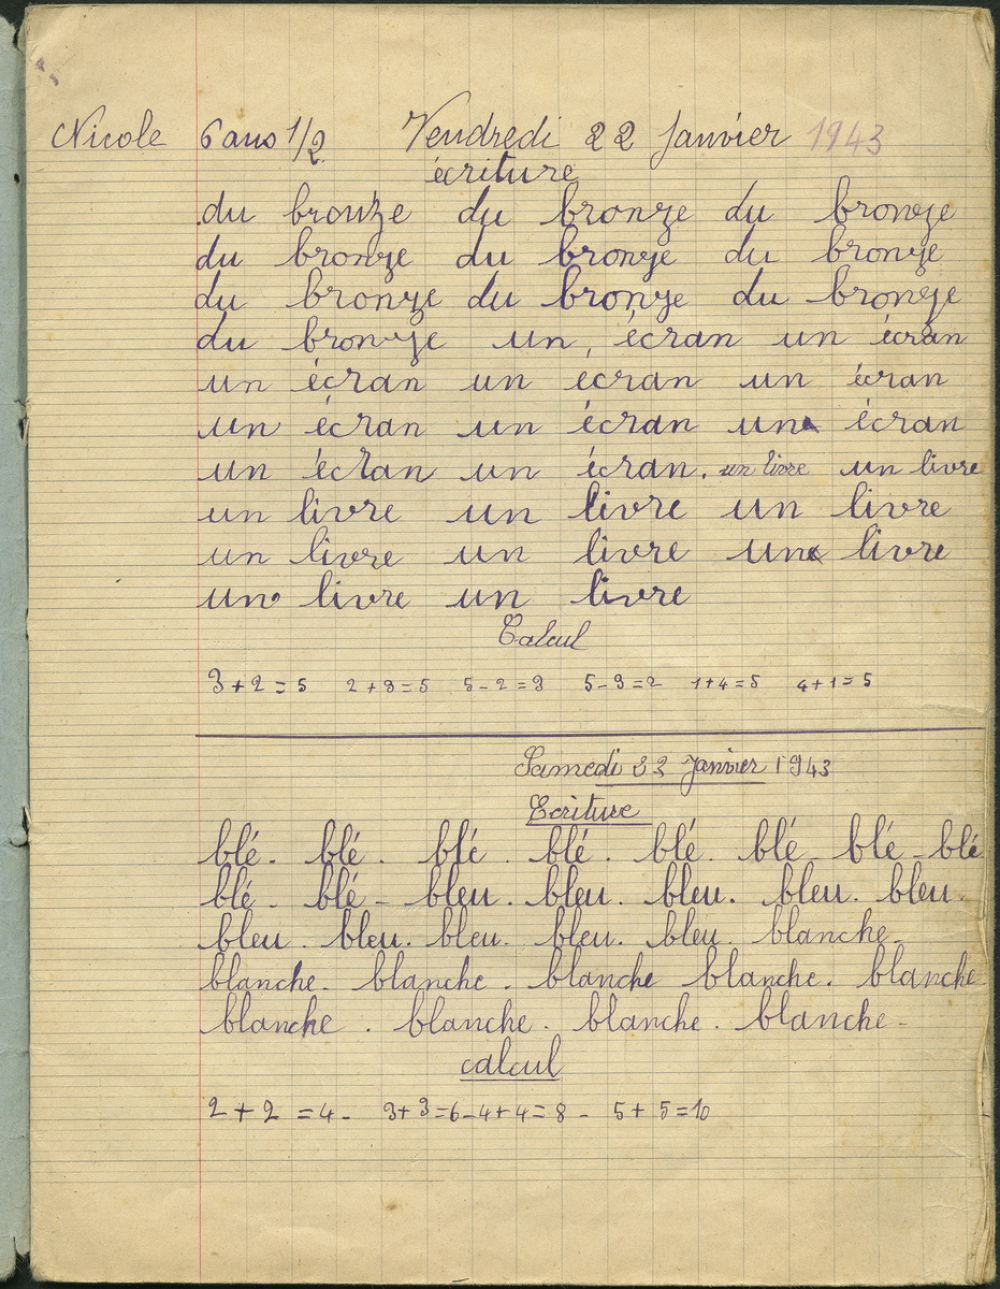 Nicole 6 ans 1/2 Vendredi 22 Janvier 1943
écriture
du bronze du bronze du bronze
du bronze du bronze du bronze
du bronze du bronze du bronze
du bronze un écran un écran
un écran un écran un écran
un écran un écran un écran
un écran un écran. un livre un livre
un livre un livre un livre
un livre un livre un livre
un livre un livre
Calcul
3+2=5 2+3=5 5-2=3 5-3=2 1+4=5 4+1=5
Samedi 23 Janvier 1943
Ecriture
blé. blé. blé. blé. blé. blé - blé - blé
blé - blé - bleu. bleu. bleu. bleu. bleu.
bleu. bleu. bleu. bleu. bleu blanche.
blanche. blanche. blanche blanche. blanche
blanche. blanche. blanche. blanche -
calcul
2+2=4- 3+3=6-4+4=8- 5+5=10